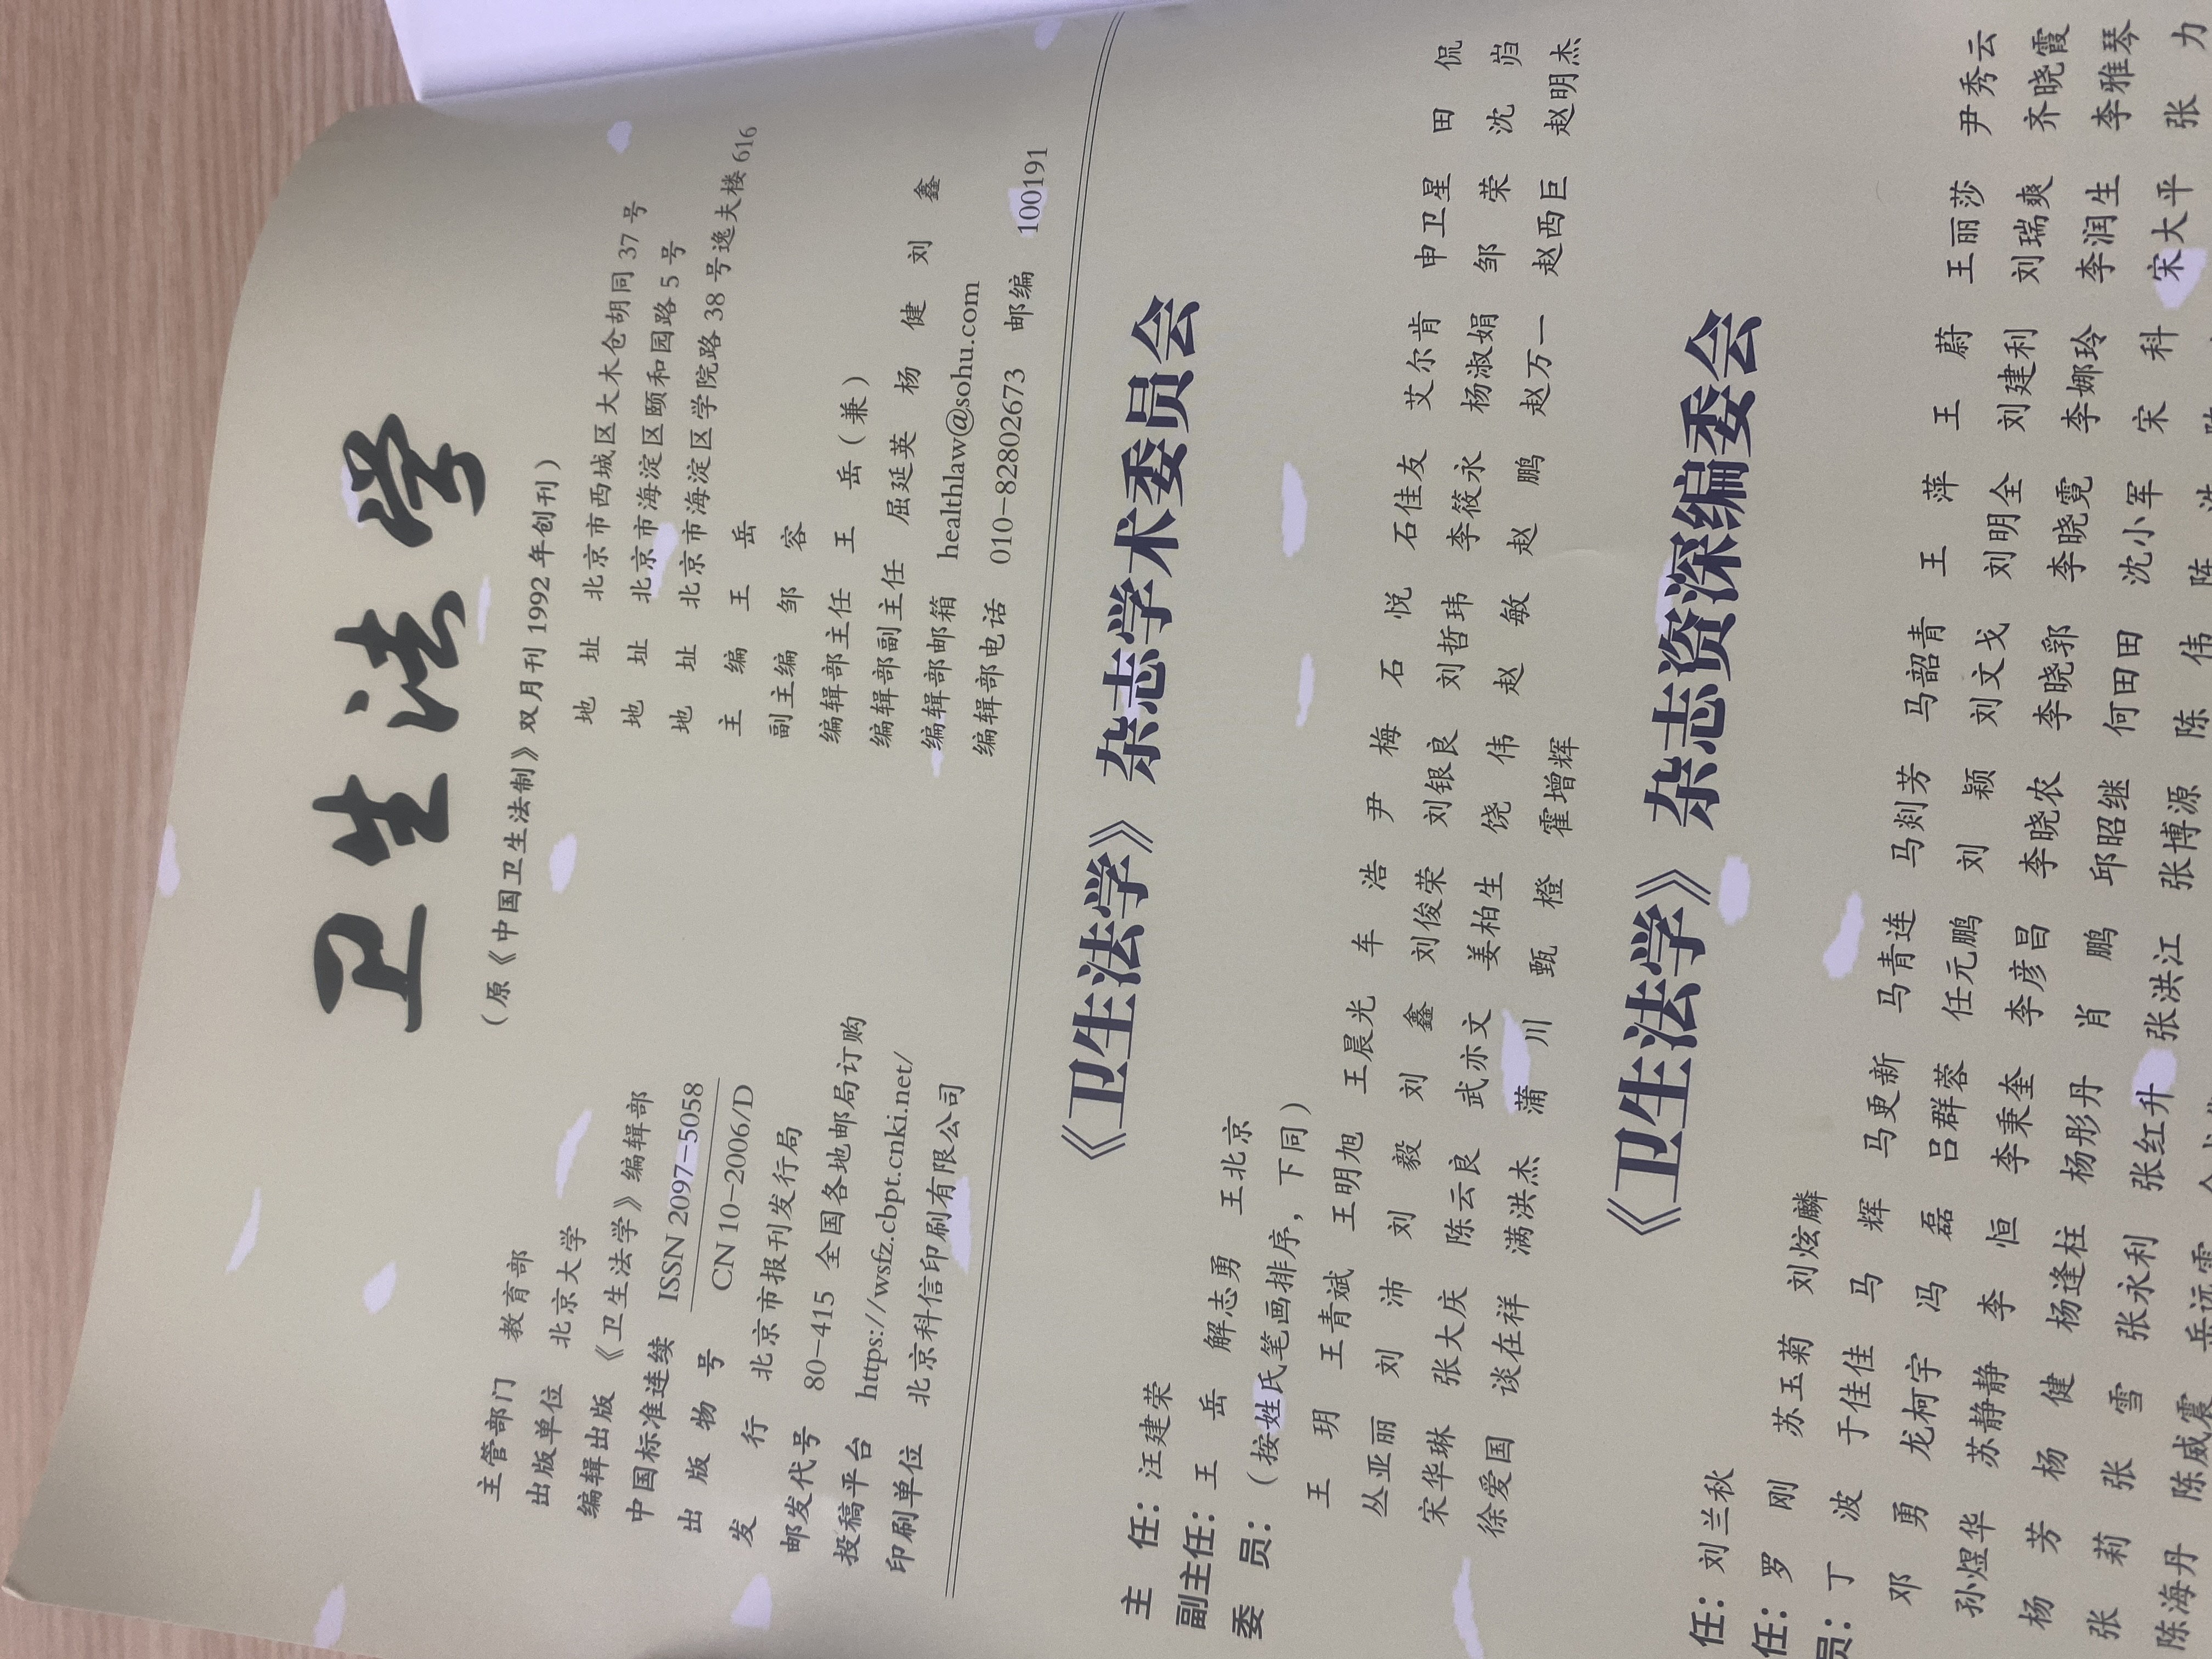 卫生法学
（原《中国卫生法制》双月刊 1992 年创刊）
主管部门 教育部
出版单位 北京大学
编辑出版 《卫生法学》编辑部
中国标准连续 ISSN 2097-5058
出版物号 CN 10-2006/D
发行 北京市报刊发行局
邮发代号 80-415 全国各地邮局订购
投稿平台 https://wsfz.cbpt.cnki.net/
印刷单位 北京科信印刷有限公司
地址 北京市西城区大木仓胡同 37 号
地址 北京市海淀区颐和园路 5 号
地址 北京市海淀区学院路 38 号逸夫楼 616
主编 王岳
副主编 邹容
编辑部主任 王岳（兼）
编辑部副主任 屈延英 杨健 刘鑫
编辑部邮箱 healthlaw@sohu.com
编辑部电话 010-82802673 邮编 100191
《卫生法学》杂志学术委员会
主 任：汪建荣
副主任：王岳 解志勇 王北京
委 员：（按姓氏笔画排序，下同）
王玥 王青斌 王明旭 王晨光 车浩 尹梅 石悦 石佳友 艾尔肯 申卫星 田侃
丛亚丽 刘沛 刘毅 刘鑫 刘俊荣 刘银良 刘哲玮 李筱永 杨淑娟 邹荣 沈岿
宋华琳 张大庆 陈云良 武亦文 姜柏生 饶伟 赵敏 赵鹏 赵万一 赵西巨 赵明杰
徐爱国 谈在祥 满洪杰 蒲川 甄橙 霍增辉
《卫生法学》杂志资深编委会
任：刘兰秋
任：罗刚 苏玉菊 刘炫麟
员：丁波 于佳佳 马辉 马更新 马青连 马剡芳 马韶青 王萍 王蔚 王丽莎 尹秀云
邓勇 龙柯宇 冯磊 吕群蓉 任元鹏 刘颖 刘文戈 刘明全 刘建利 刘瑞爽 齐晓霞
孙煜华 苏静静 李恒 李秉奎 李彦昌 李晓农 李晓郛 李晓霓 李娜玲 李润生 李雅琴
杨芳 杨健 杨逢柱 杨彤丹 肖鹏 邱昭继 何田田 沈小军 宋科 宋大平 张力
张莉 张雪 张永利 张红升 张洪江 张博源 陈伟
陈海丹 陈威震